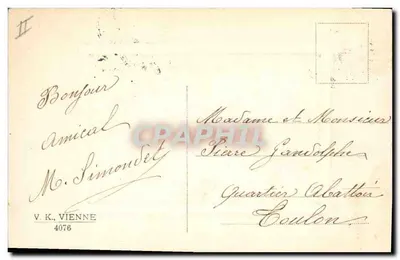 II
Bonjour
amical
M. Simondet
V. K., VIENNE
4076
Madame et Monsieur
Pierre Gandolphe
Quartier Abattoir
Toulon.
CARTHAPHILIE